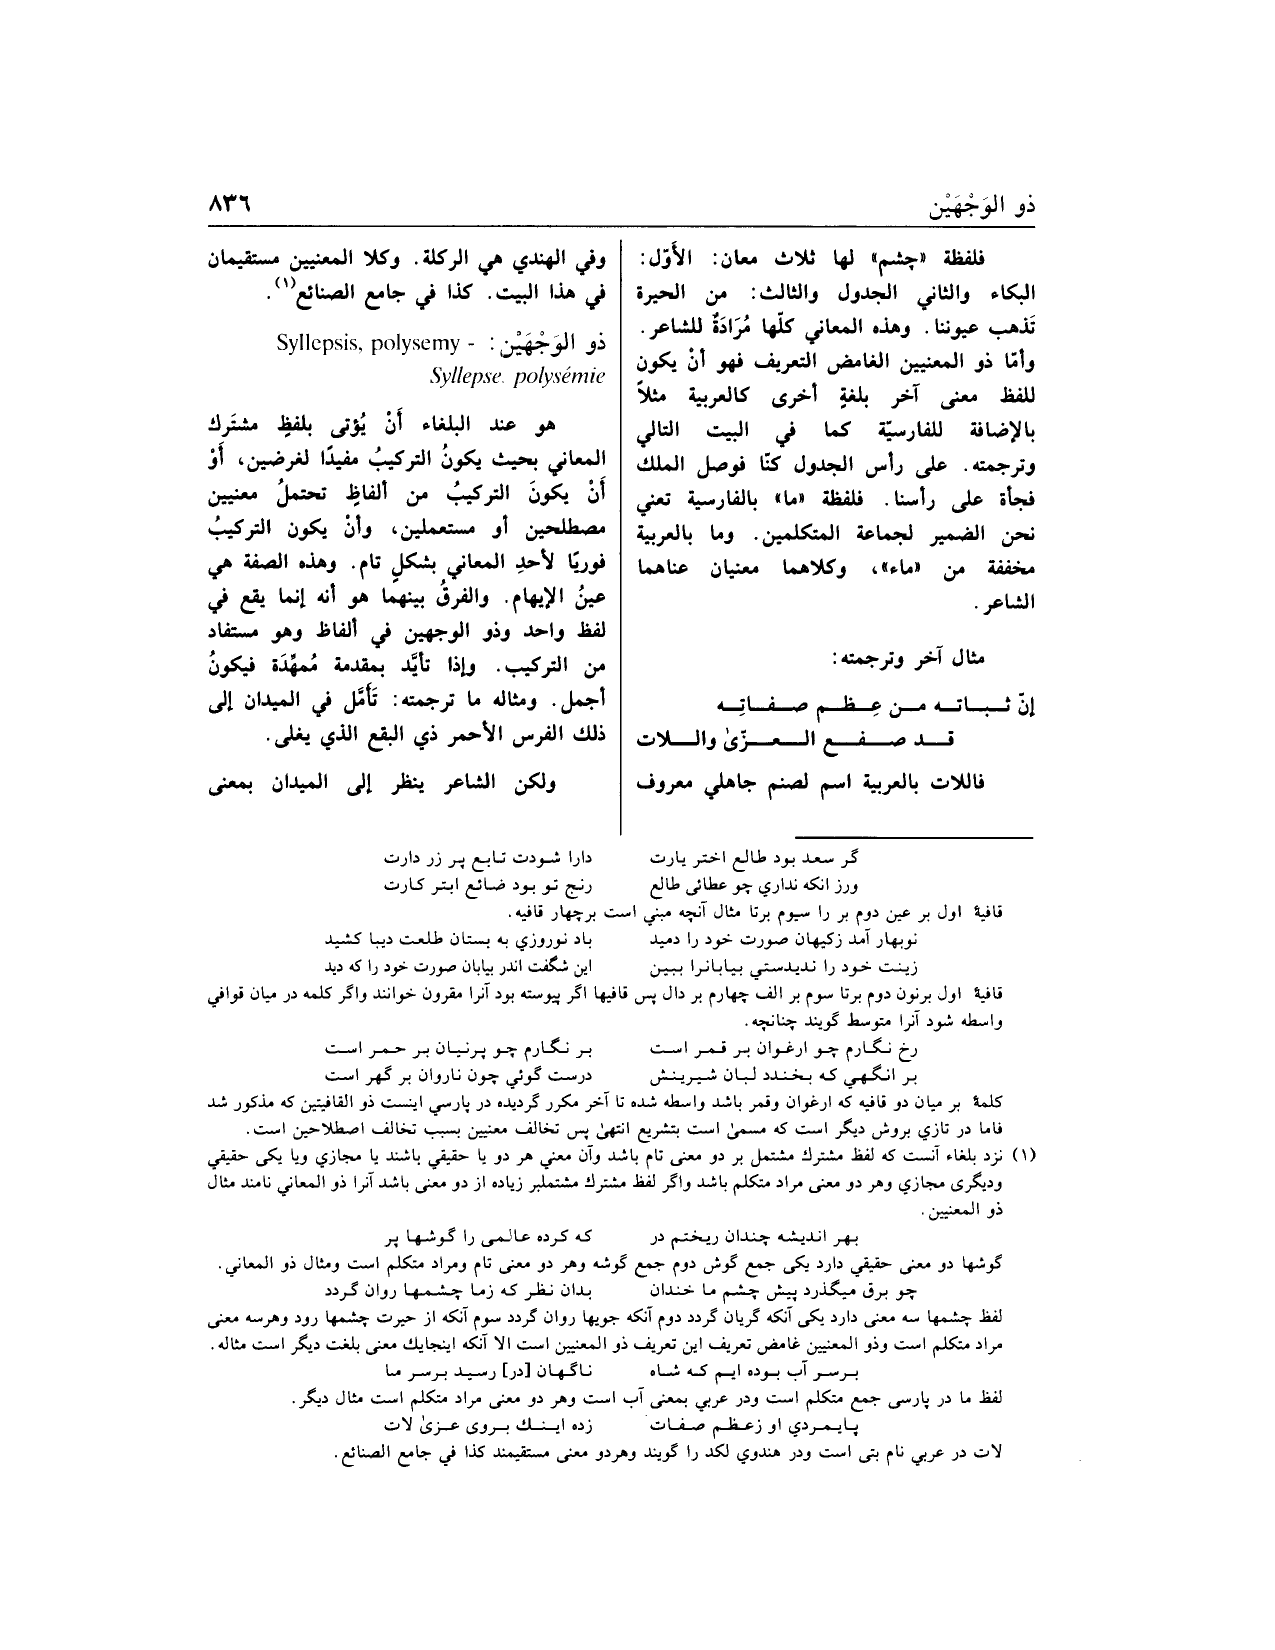 ذو الوَجْهَيْن
٨٣٦
فلفظة «چشم» لها ثلاث معان: الأَوّل:
البكاء والثاني الجدول والثالث: من الحيرة
تَذهب عيوننا. وهذه المعاني كلّها مُرَادَةٌ للشاعر.
وأمّا ذو المعنيين الغامض التعريف فهو أنْ يكون
للفظ معنى آخر بلغةٍ أخرى كالعربية مثلاً
بالإضافة للفارسيّة كما في البيت التالي
وترجمته. على رأس الجدول كنّا فوصل الملك
فجأة على رأسنا. فلفظة «ما» بالفارسية تعني
نحن الضمير لجماعة المتكلمين. وما بالعربية
مخففة من «ماء»، وكلاهما معنيان عناهما
الشاعر.
مثال آخر وترجمته:
إنّ ثـبـاتـه مـن عِـظـم صـفـاتِـه
قـد صـفـع الـعـزّىٰ والـلات
فاللات بالعربية اسم لصنم جاهلي معروف
وفي الهندي هي الركلة. وكلا المعنيين مستقيمان
في هذا البيت. كذا في جامع الصنائع(١).
ذو الوَجْهَيْن: Syllepsis, polysemy -
Syllepse. polysémie
هو عند البلغاء أَنْ يُؤتى بلفظٍ مشتَرك
المعاني بحيث يكونُ التركيبُ مفيدًا لغرضين، أَوْ
أَنْ يكونَ التركيبُ من ألفاظٍ تحتملُ معنيين
مصطلحين أو مستعملين، وأنْ يكون التركيبُ
فوريًا لأحدِ المعاني بشكلٍ تام. وهذه الصفة هي
عينُ الإيهام. والفرقُ بينهما هو أنه إنما يقع في
لفظ واحد وذو الوجهين في ألفاظ وهو مستفاد
من التركيب. وإذا تأيَّد بمقدمة مُمهِّدَة فيكونُ
أجمل. ومثاله ما ترجمته: تَأَمَّل في الميدان إلى
ذلك الفرس الأحمر ذي البقع الذي يغلى.
ولكن الشاعر ينظر إلى الميدان بمعنى
گر سعد بود طالع اختر يارت دارا شودت تابع پر زر دارت
ورز انكه نداري چو عطائى طالع رنج تو بود ضائع ابتر كارت
قافيهٔ اول بر عين دوم بر را سيوم برتا مثال آنچه مبني است برچهار قافيه.
نوبهار آمد زكيهان صورت خود را دميد باد نوروزي به بستان طلعت ديبا كشيد
زينت خود را نديدستي بيابانرا ببين اين شگفت اندر بيابان صورت خود را كه ديد
قافيهٔ اول برنون دوم برتا سوم بر الف چهارم بر دال پس قافيها اگر پيوسته بود آنرا مقرون خوانند واگر كلمه در ميان قوافي
واسطه شود آنرا متوسط گويند چنانچه.
رخ نگارم چو ارغوان بر قمر است بر نگارم چو پرنيان بر حمر است
بر انگهي كه بخندد لبان شيرينش درست گوئي چون ناروان بر گهر است
كلمهٔ بر ميان دو قافيه كه ارغوان وقمر باشد واسطه شده تا آخر مكرر گرديده در پارسي اينست ذو القافيتين كه مذكور شد
فاما در تازي بروش ديگر است كه مسمىٰ است بتشريع انتهىٰ پس تخالف معنيين بسبب تخالف اصطلاحين است.
(١) نزد بلغاء آنست كه لفظ مشترك مشتمل بر دو معنى تام باشد وآن معني هر دو يا حقيقي باشند يا مجازي ويا يكى حقيقي
وديگرى مجازي وهر دو معنى مراد متكلم باشد واگر لفظ مشترك مشتملبر زياده از دو معنى باشد آنرا ذو المعاني نامند مثال
ذو المعنيين.
بهر انديشه چندان ريختم در كه كرده عالمى را گوشها پر
گوشها دو معنى حقيقي دارد يكى جمع گوش دوم جمع گوشه وهر دو معنى تام ومراد متكلم است ومثال ذو المعاني.
چو برق ميگذرد پيش چشم ما خندان بدان نظر كه زما چشمها روان گردد
لفظ چشمها سه معنى دارد يكى آنكه گريان گردد دوم آنكه جويها روان گردد سوم آنكه از حيرت چشمها رود وهرسه معنى
مراد متكلم است وذو المعنيين غامض تعريف اين تعريف ذو المعنيين است الا آنكه اينجايك معنى بلغت ديگر است مثاله.
برسر آب بوده ايم كه شاه ناگهان [در] رسيد برسر ما
لفظ ما در پارسى جمع متكلم است ودر عربي بمعنى آب است وهر دو معنى مراد متكلم است مثال ديگر.
پايمردي او زعظم صفات زده اينك بروى عزىٰ لات
لات در عربي نام بتى است ودر هندوي لكد را گويند وهردو معنى مستقيمند كذا في جامع الصنائع.